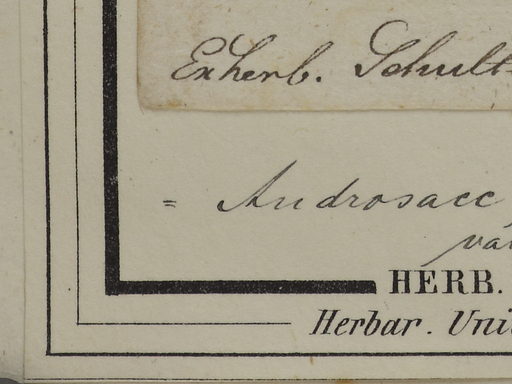 Ex herb. Schult
= Androsace
va
HERB.
Herbar. Uni